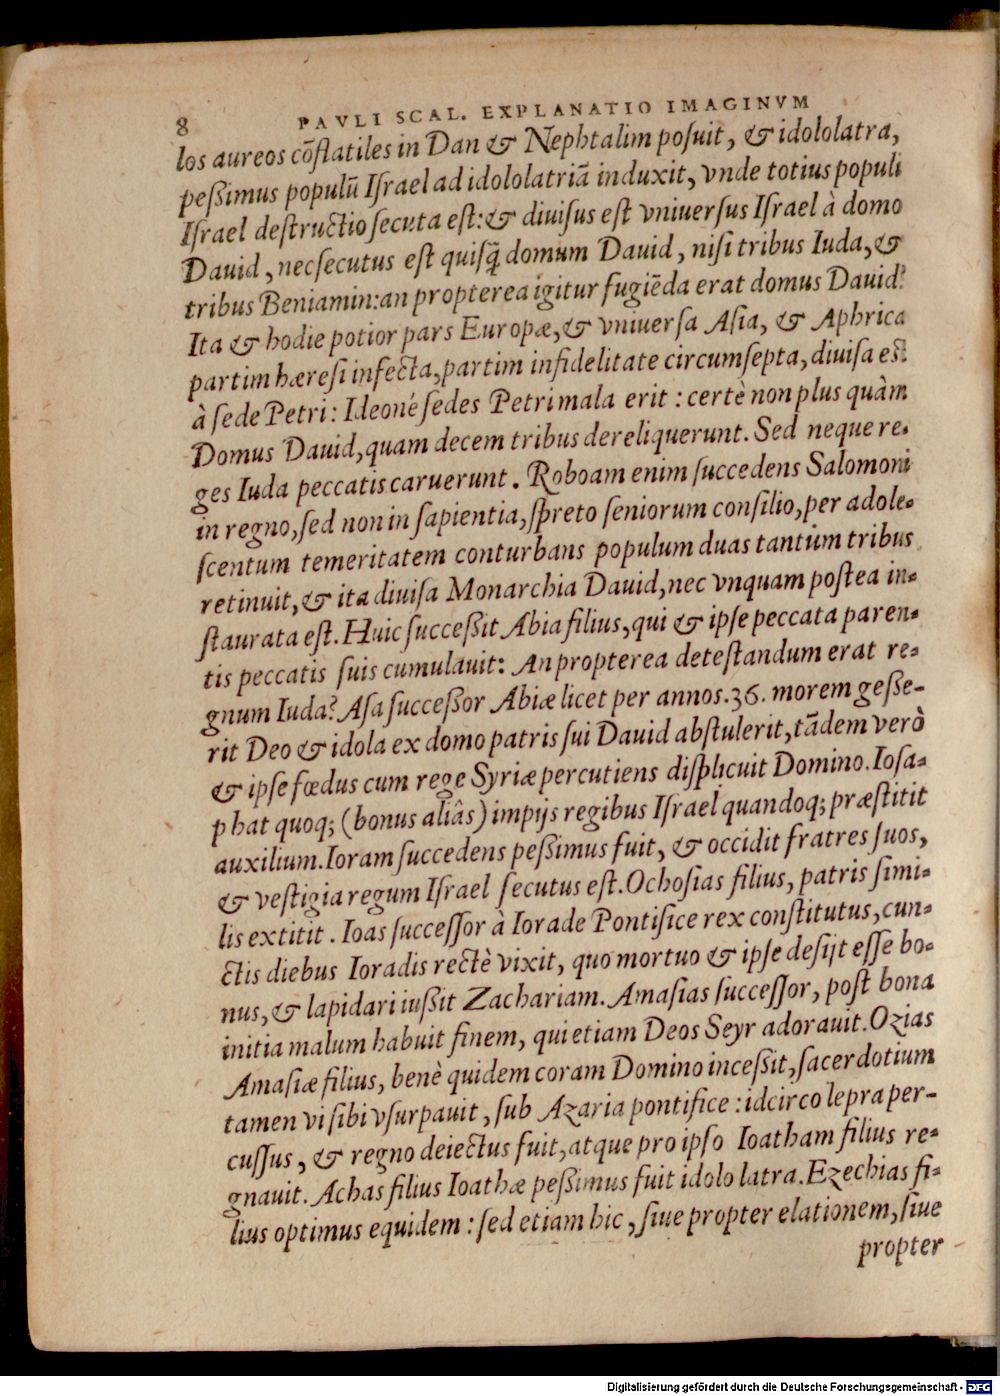 8 PAVLI SCAL. EXPLANATIO IMAGINVM
los aureos cõſtatiles in Dan & Nephtalim poſuit, & idololatra,
peßimus populũ Iſrael ad idololatriã induxit, vnde totius populi
Iſrael deſtructio ſecuta eſt: & diuiſus eſt vniuerſus Iſrael à domo
Dauid, nec ſecutus eſt quiſq̃ domum Dauid, niſi tribus Iuda, &
tribus Beniamin: an propterea igitur fugiẽda erat domus Dauid?
Ita & hodie potior pars Europæ, & vniuerſa Aſia, & Aphrica
partim hæreſi infecta, partim infidelitate circumſepta, diuiſa eſt
à ſede Petri: Ideoné ſedes Petri mala erit: certè non plus quàm
Domus Dauid, quam decem tribus dereliquerunt. Sed neque re-
ges Iuda peccatis caruerunt. Roboam enim ſuccedens Salomoni
in regno, ſed non in ſapientia, ſpreto ſeniorum conſilio, per adole-
ſcentum temeritatem conturbans populum duas tantùm tribus
retinuit, & ita diuiſa Monarchia Dauid, nec vnquam poſtea in-
ſtaurata eſt. Huic ſucceßit Abia filius, qui & ipſe peccata paren-
tis peccatis ſuis cumulauit: An propterea deteſtandum erat re-
gnum Iuda? Aſa ſucceßor Abiæ licet per annos. 36. morem geße-
rit Deo & idola ex domo patris ſui Dauid abſtulerit, tãdem verò
& ipſe fœdus cum rege Syriæ percutiens diſplicuit Domino. Ioſa-
phat quoq; (bonus aliâs) impijs regibus Iſrael quandoq; præſtitit
auxilium. Ioram ſuccedens peßimus fuit, & occidit fratres ſuos,
& veſtigia regum Iſrael ſecutus eſt. Ochoſias filius, patris ſimi-
lis extitit. Ioas ſucceſſor à Iorade Pontifice rex conſtitutus, cun-
ctis diebus Ioradis rectè vixit, quo mortuo & ipſe deſijt eſſe bo-
nus, & lapidari iußit Zachariam. Amaſias ſucceſſor, poſt bona
initia malum habuit finem, qui etiam Deos Seyr adorauit. Ozias
Amaſiæ filius, benè quidem coram Domino inceßit, ſacerdotium
tamen vi ſibi vſurpauit, ſub Azaria pontifice: idcirco lepra per-
cuſſus, & regno deiectus fuit, atque pro ipſo Ioatham filius re-
gnauit. Achas filius Ioathæ peßimus fuit idololatra. Ezechias fi-
lius optimus equidem: ſed etiam hic, ſiue propter elationem, ſiue
propter
Digitalisierung gefördert durch die Deutsche Forschungsgemeinschaft - DFG